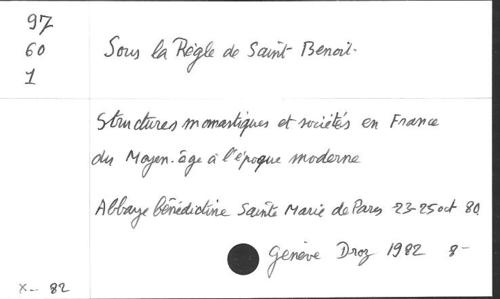 97
60
1
Sous la Règle de Saint Benoit.
Structures monastiques et sociétés en France
du Moyen-âge à l'époque moderne
Abbaye bénédictine Sainte Marie de Paris 23-25 oct 80
Genève Droz 1982 8-
X-- 82